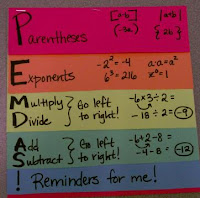 Parentheses [a·b] |a+b|
(-3x) {2b}
Exponents -2² = -4 a·a=a²
6³=216 x⁰=1
Multiply } Go left -6×3÷2=
Divide to right! -18÷2=-9
Add } Go left
Subtract to right! -4-8=-12
! Reminders for me!